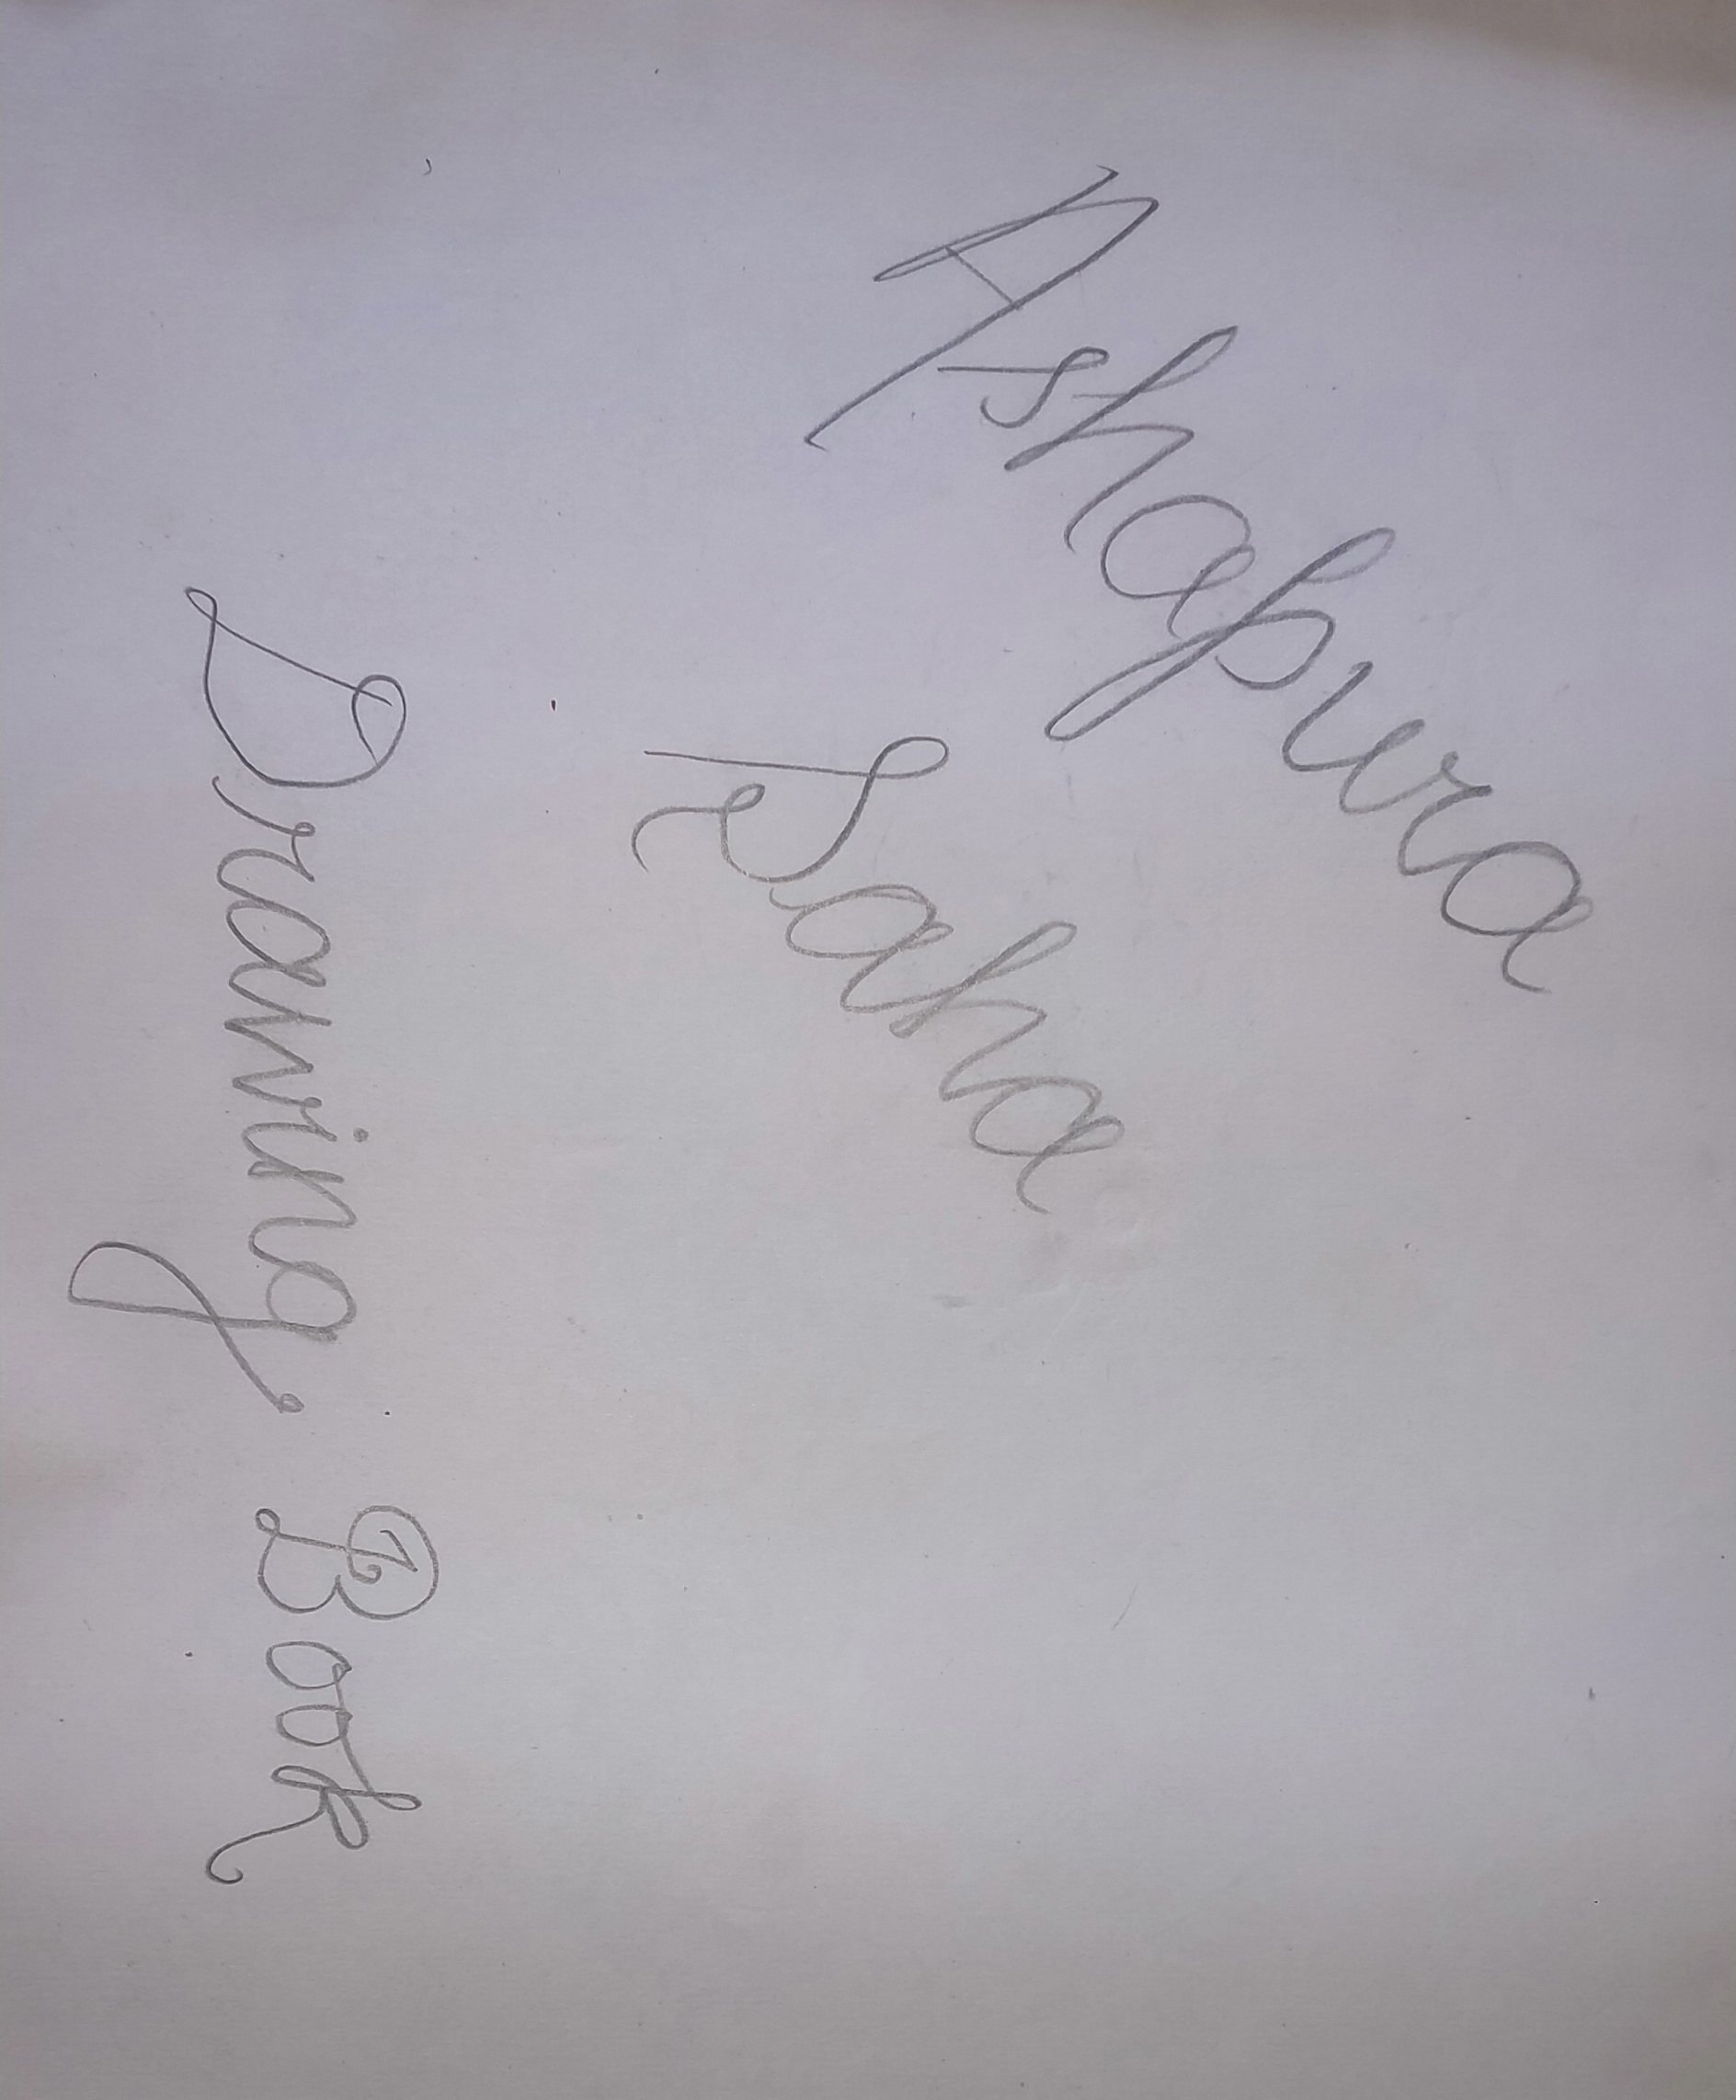 Ashapura
Saha
Drawing Book